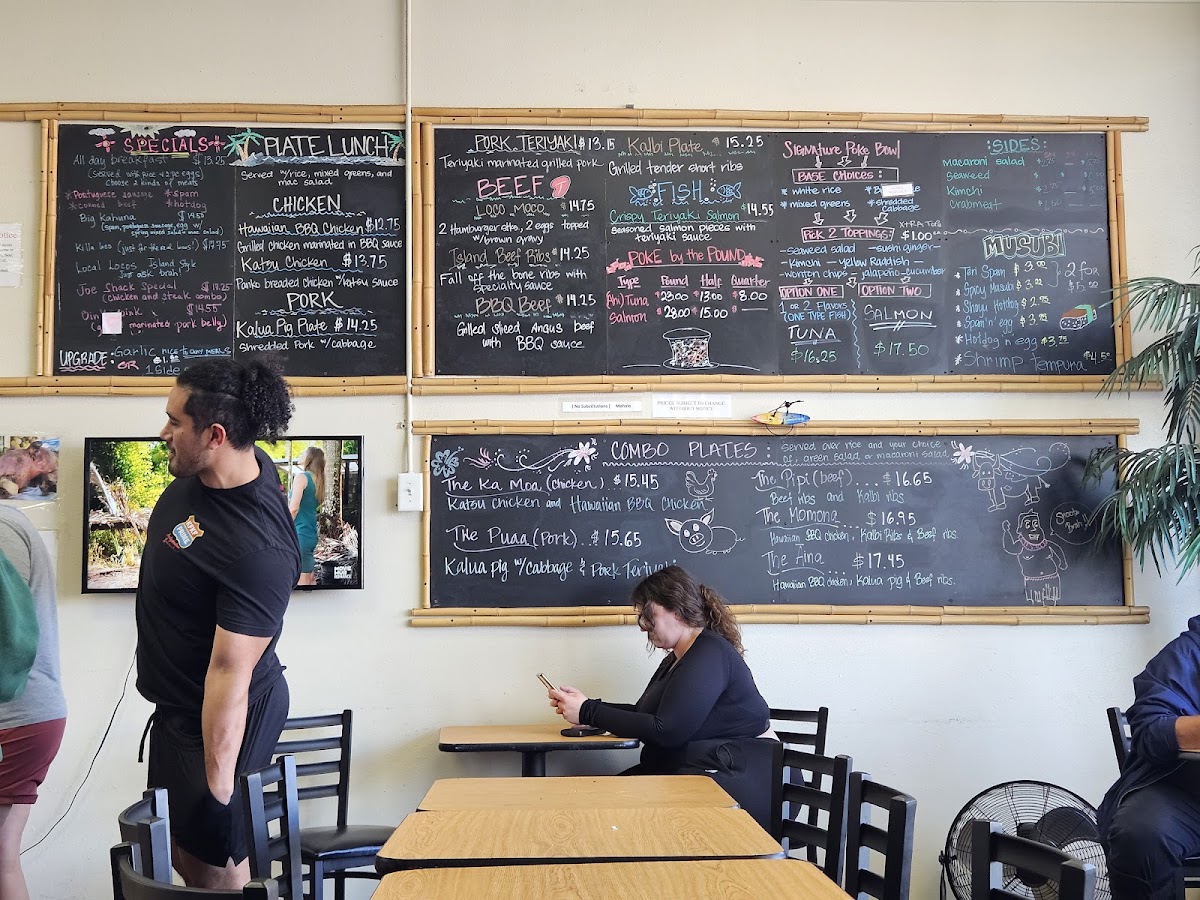 SPECIALS
All day breakfast $13.25
(served with rice & 2 pc eggs)
choose 2 kinds of meats
*Portuguese sausage *spam
*corned beef *hotdog
Big Kahuna $14.55
Killa Loco (just for da real locos!) $17.75
Local Locos Island Style
Joe Shack Special $17.25
(chicken and steak combo)
$14.55
marinated pork belly)
UPGRADE: Garlic rice
OR 1 side
PLATE LUNCH
Served w/rice, mixed greens, and
mac salad
CHICKEN
Hawaiian BBQ Chicken $12.75
Grilled chicken marinated in BBQ sauce
Katsu Chicken $13.75
Panko breaded chicken w/katsu sauce
PORK
Kalua Pig Plate $14.25
Shredded Pork w/cabbage
PORK TERIYAKI $13.15
Teriyaki marinated grilled pork
BEEF
Loco Moco $14.75
2 Hamburger patties, 2 eggs topped
w/brown gravy
Island Beef Ribs $14.25
Fall off the bone ribs with
specialty sauce
BBQ Beef $14.25
Grilled sliced Angus beef
with BBQ sauce
Kalbi Plate $15.25
Grilled tender short ribs
FISH
Crispy Teriyaki Salmon $14.55
Seasoned salmon pieces with
teriyaki sauce
POKE by the POUND
Type Pound Half Quarter
Ahi Tuna $23.00 $13.00 $8.00
Salmon $28.00 $15.00
SIGNATURE POKE BOWL
BASE CHOICES:
* white rice
* mixed greens *shredded
cabbage
PICK 2 TOPPINGS: XTRA TOPS $1.00
-seaweed salad -sushi ginger-
-Kimchi -yellow raddish-
-wonton chips -jalapeño-cucumber
OPTION ONE OPTION TWO
1 or 2 Flavors
(ONE TYPE FISH)
TUNA
$16.25
SALMON
$17.50
SIDES:
Macaroni salad
Seaweed
Kimchi
Crabmeat
MUSUBI
*Teri Spam $3.00
*Spicy Musubi $3.00
2 for $5.00
*Shoyu Hotdog $2.75
*Spam 'n' egg $3.75
*Hotdog 'n egg $3.75
*Shrimp Tempura $4.50
No Substitutions | Mahalo
PRICES SUBJECT TO CHANGE
WITHOUT NOTICE
COMBO PLATES:
Served over rice and your choice
of green salad or macaroni salad
The Ka Moa (chicken) $15.45
Katsu chicken and Hawaiian BBQ Chicken
The Puaa (Pork)...$15.65
Kalua pig w/cabbage & Pork Teriyaki
The Pipi (beef)....$16.65
Beef ribs and Kalbi ribs
The Momona......$16.95
Hawaiian BBQ chicken, Kalbi Ribs & Beef ribs.
The Aina....$17.45
Hawaiian BBQ chicken, Kalua pig & Beef ribs.
Shoots
Brah!